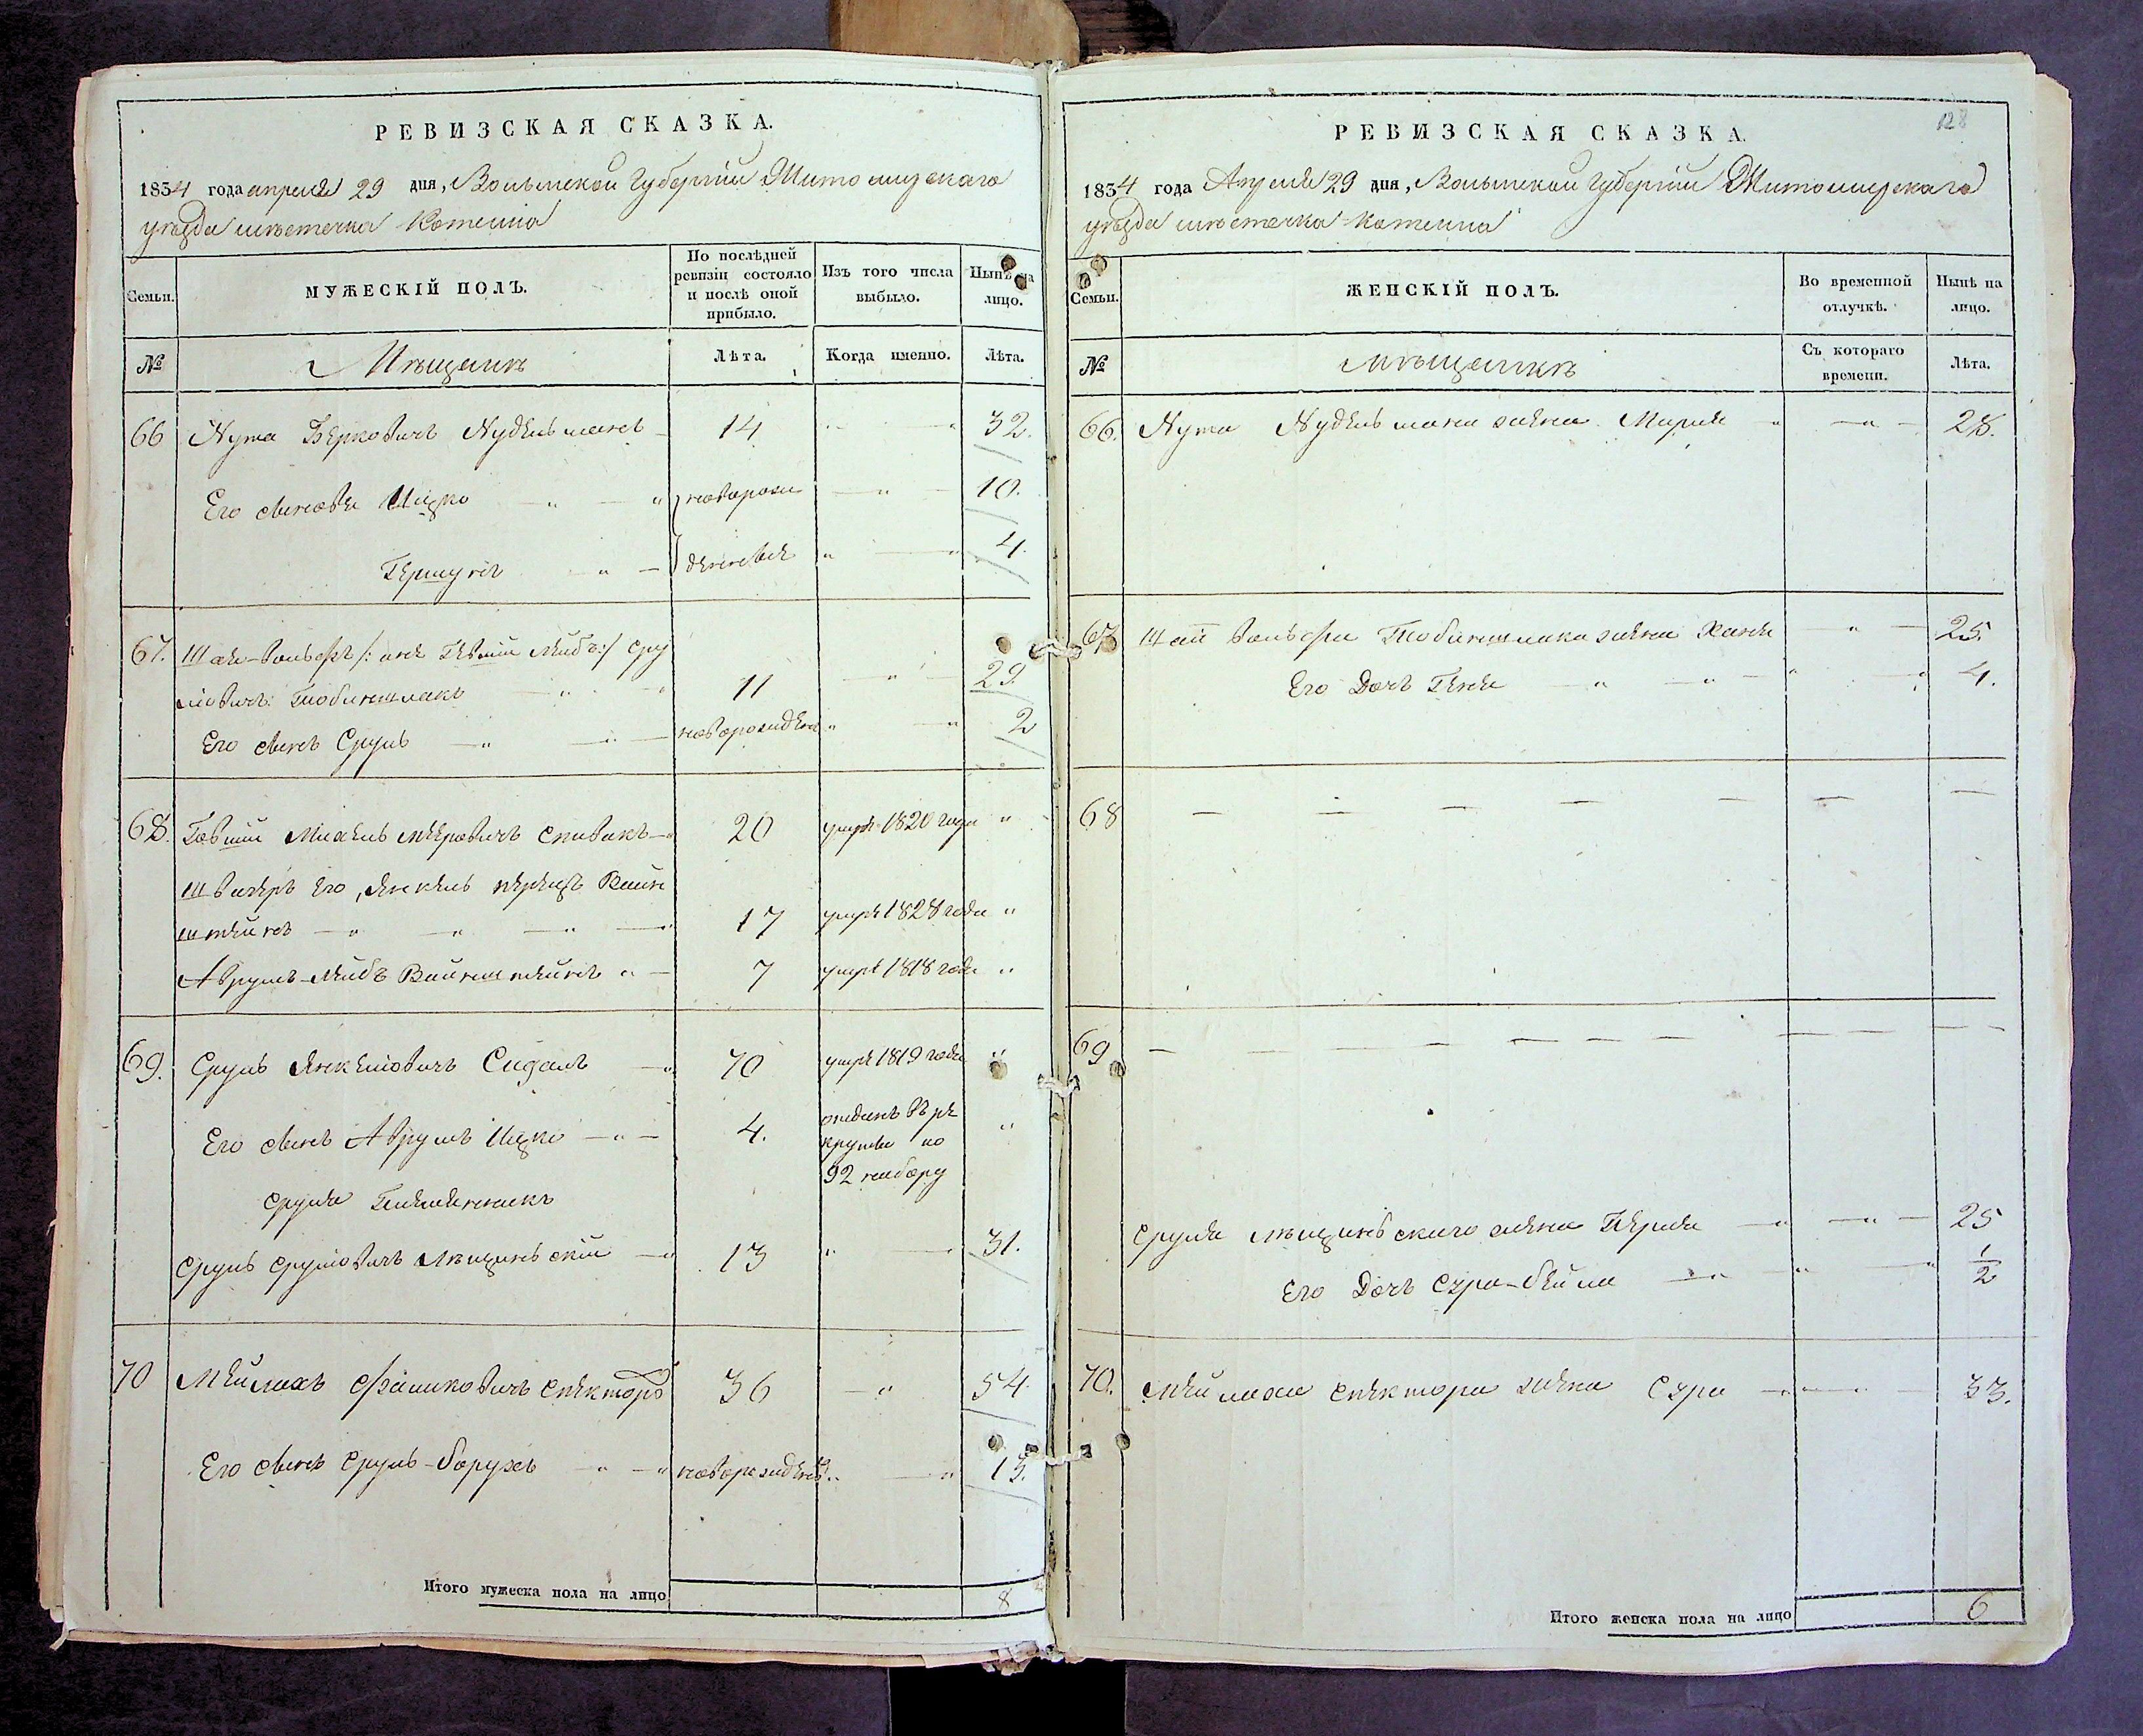 РЕВИЗСКАЯ СКАЗКА.
1834 года апреля 29 дня, Волынской Губернии Житомирскаго
уѣзда мѣстечка Котельна
Семьи.
МУЖЕСКІЙ ПОЛЪ.
По послѣдней ревизіи состояло и послѣ оной прибыло.
Изъ того числа выбыло.
Нынѣ на лицо.
№
Мѣщанъ
Лѣта.
Когда именно.
Лѣта.
66 Нута Берковичъ Нудельманъ 14 32.
Его сыновья Ицко новорож 10.
Гершунъ денные 4.
67. Шая-Вольфъ /: онъ Лейбъ:/ Сру
лiовичъ 11 29
Его сынъ Сруль новорожденъ 2
68. Мехель Мееровичъ Спивакъ 20 умре 1820 года
Швагеръ Его, Янкель Вайн
штейнъ 17 умре 1828 года
Аврумъ-Лейбъ Вайнштейнъ 7 умре 1818 года
69. Сруль Янкелiовичъ 70 умре 1819 года
Его сынъ Аврумъ Ицко 4. отданъ въ ре
круты по
92 набору
Сруля Племянникъ
Сруль Срулiовичъ Лещинскiй 13 31.
70 Мейлахъ Спекторъ 36 54
Его сынъ Сруль-Борухъ новорожденъ 15.
Итого мужеска пола на лицо 8
128
РЕВИЗСКАЯ СКАЗКА.
1834 года Апреля 29 дня, Волынской Губернии Житомирскаго
уѣзда мѣстечка Котельна
Семьи.
ЖЕНСКІЙ ПОЛЪ.
Во временной отлучкѣ.
Нынѣ на лицо.
№
Мѣщанкъ
Съ котораго времени.
Лѣта.
66. Нута Нудельмана жена 28.
67 Вольфа жена Хана 25.
Его Дочь Геня 4.
68
69
Сруля Лещинскаго жена Перля 25
Его Дочь Сура-Бейла 1/2
70. Мейлаха Спектора жена Сура 33.
Итого женска пола на лицо 6